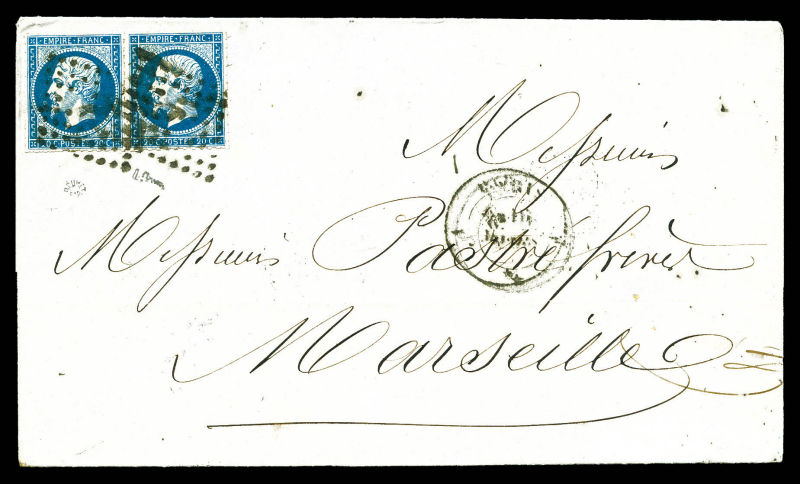 EMPIRE · FRANC · EMPIRE · FRANC ·
20 C POSTES 20 C 20 C POSTES 20 C
Messieurs
Messieurs Pastré frères
Marseille